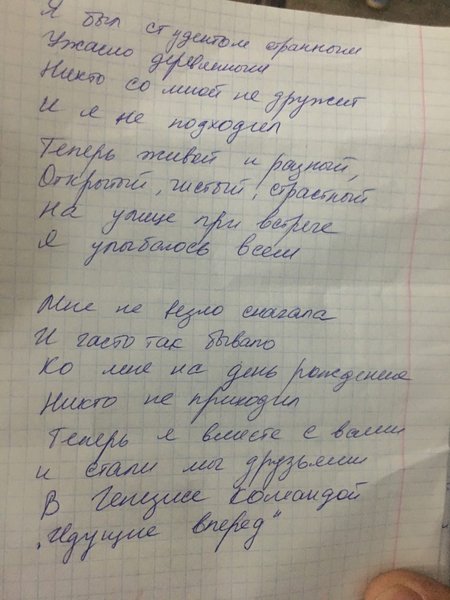 Я был студентом странным
Ужасно деревянным
Никто со мной не дружит
И я не подходил
Теперь живой и разный,
Открытый, чистый, страстный
На улице при встрече
Я улыбаюсь всем
Мне не везло сначала
И часто так бывало
Ко мне на день рождение
Никто не приходил
Теперь я вместе с вами
и стали мы друзьями
В Генезисе командой
"Идущие вперед"